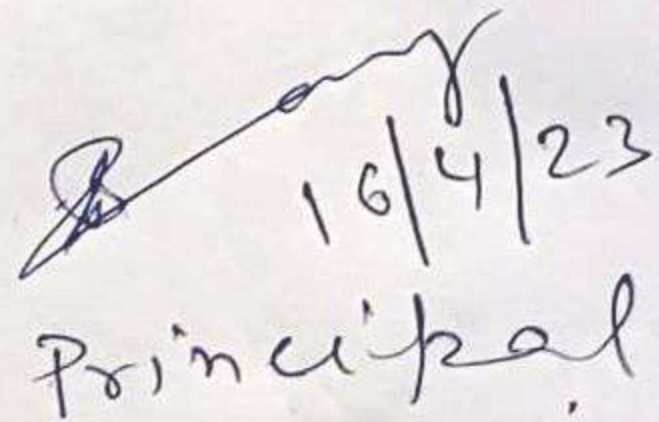 16/4/23
Principal